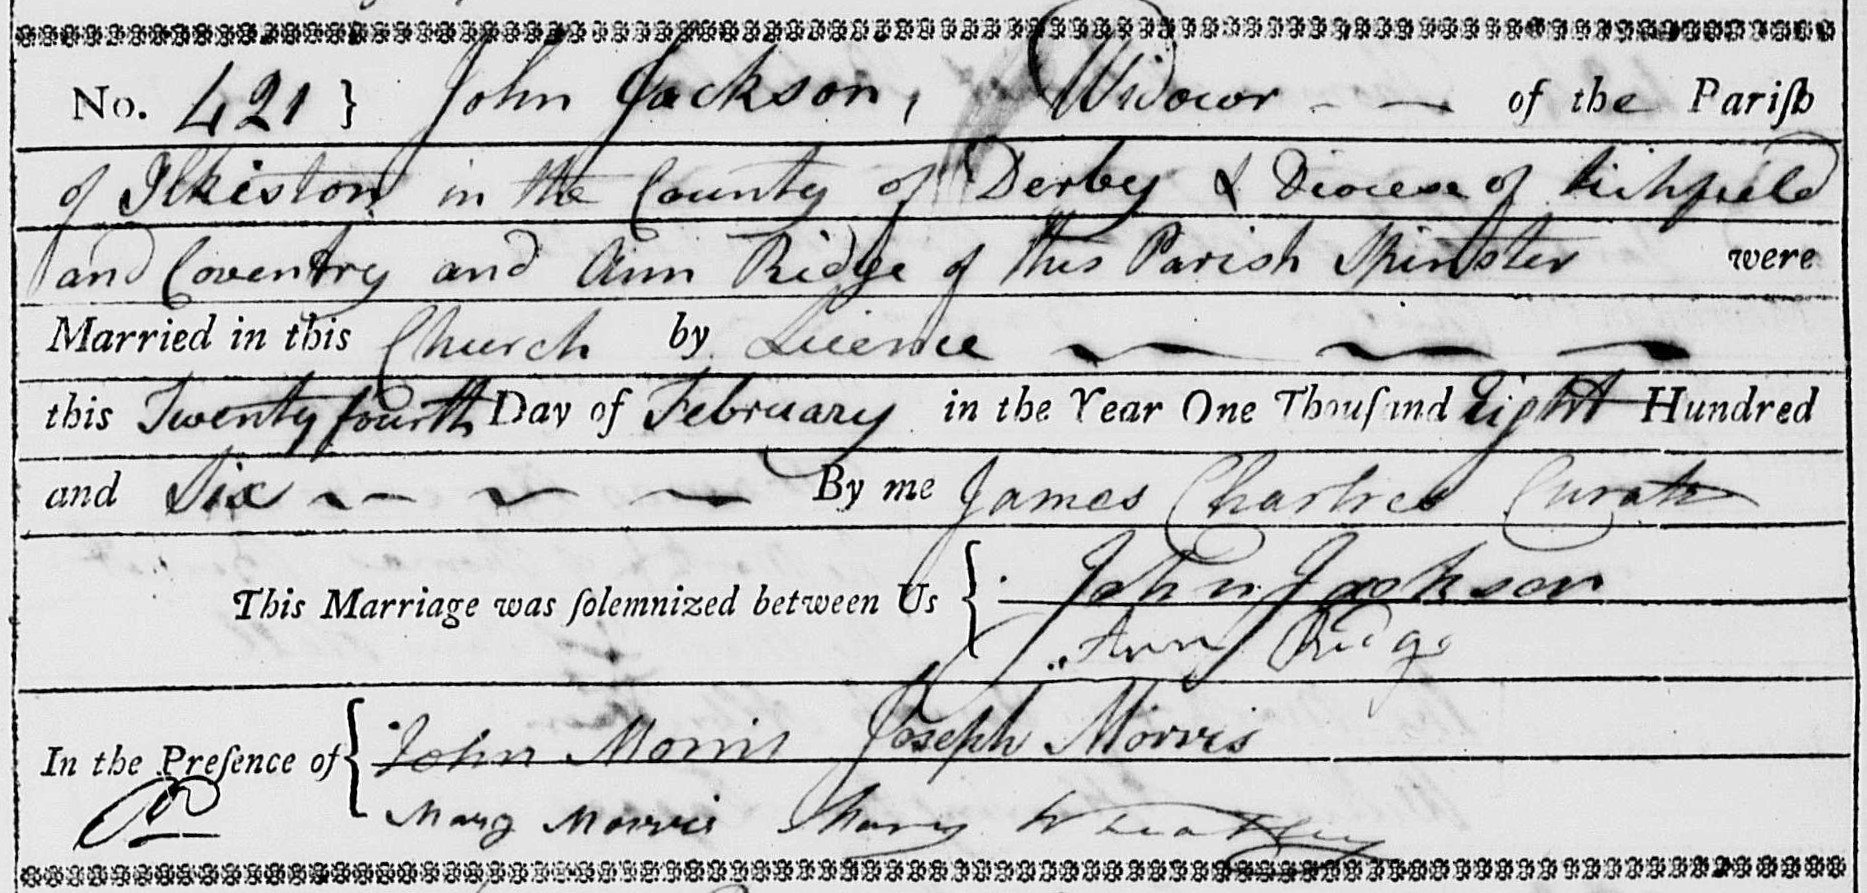 No. 421} John Jackson, Widower - - of the Pariſh
of Ilkiston in the County of Derby & Diocese of Lichfield
and Coventry and Ann Ridge of this Parish Spinster were
Married in this Church by Licence
this Twenty fourth Day of February in the Year One Thouſand Eight Hundred
and Six By me James Chartres Curate
This Marriage was ſolemnized between Us { John Jackson
Ann Ridge
In the Preſence of { John Morris Joseph Morris
Mary Morris Mary Wheatley